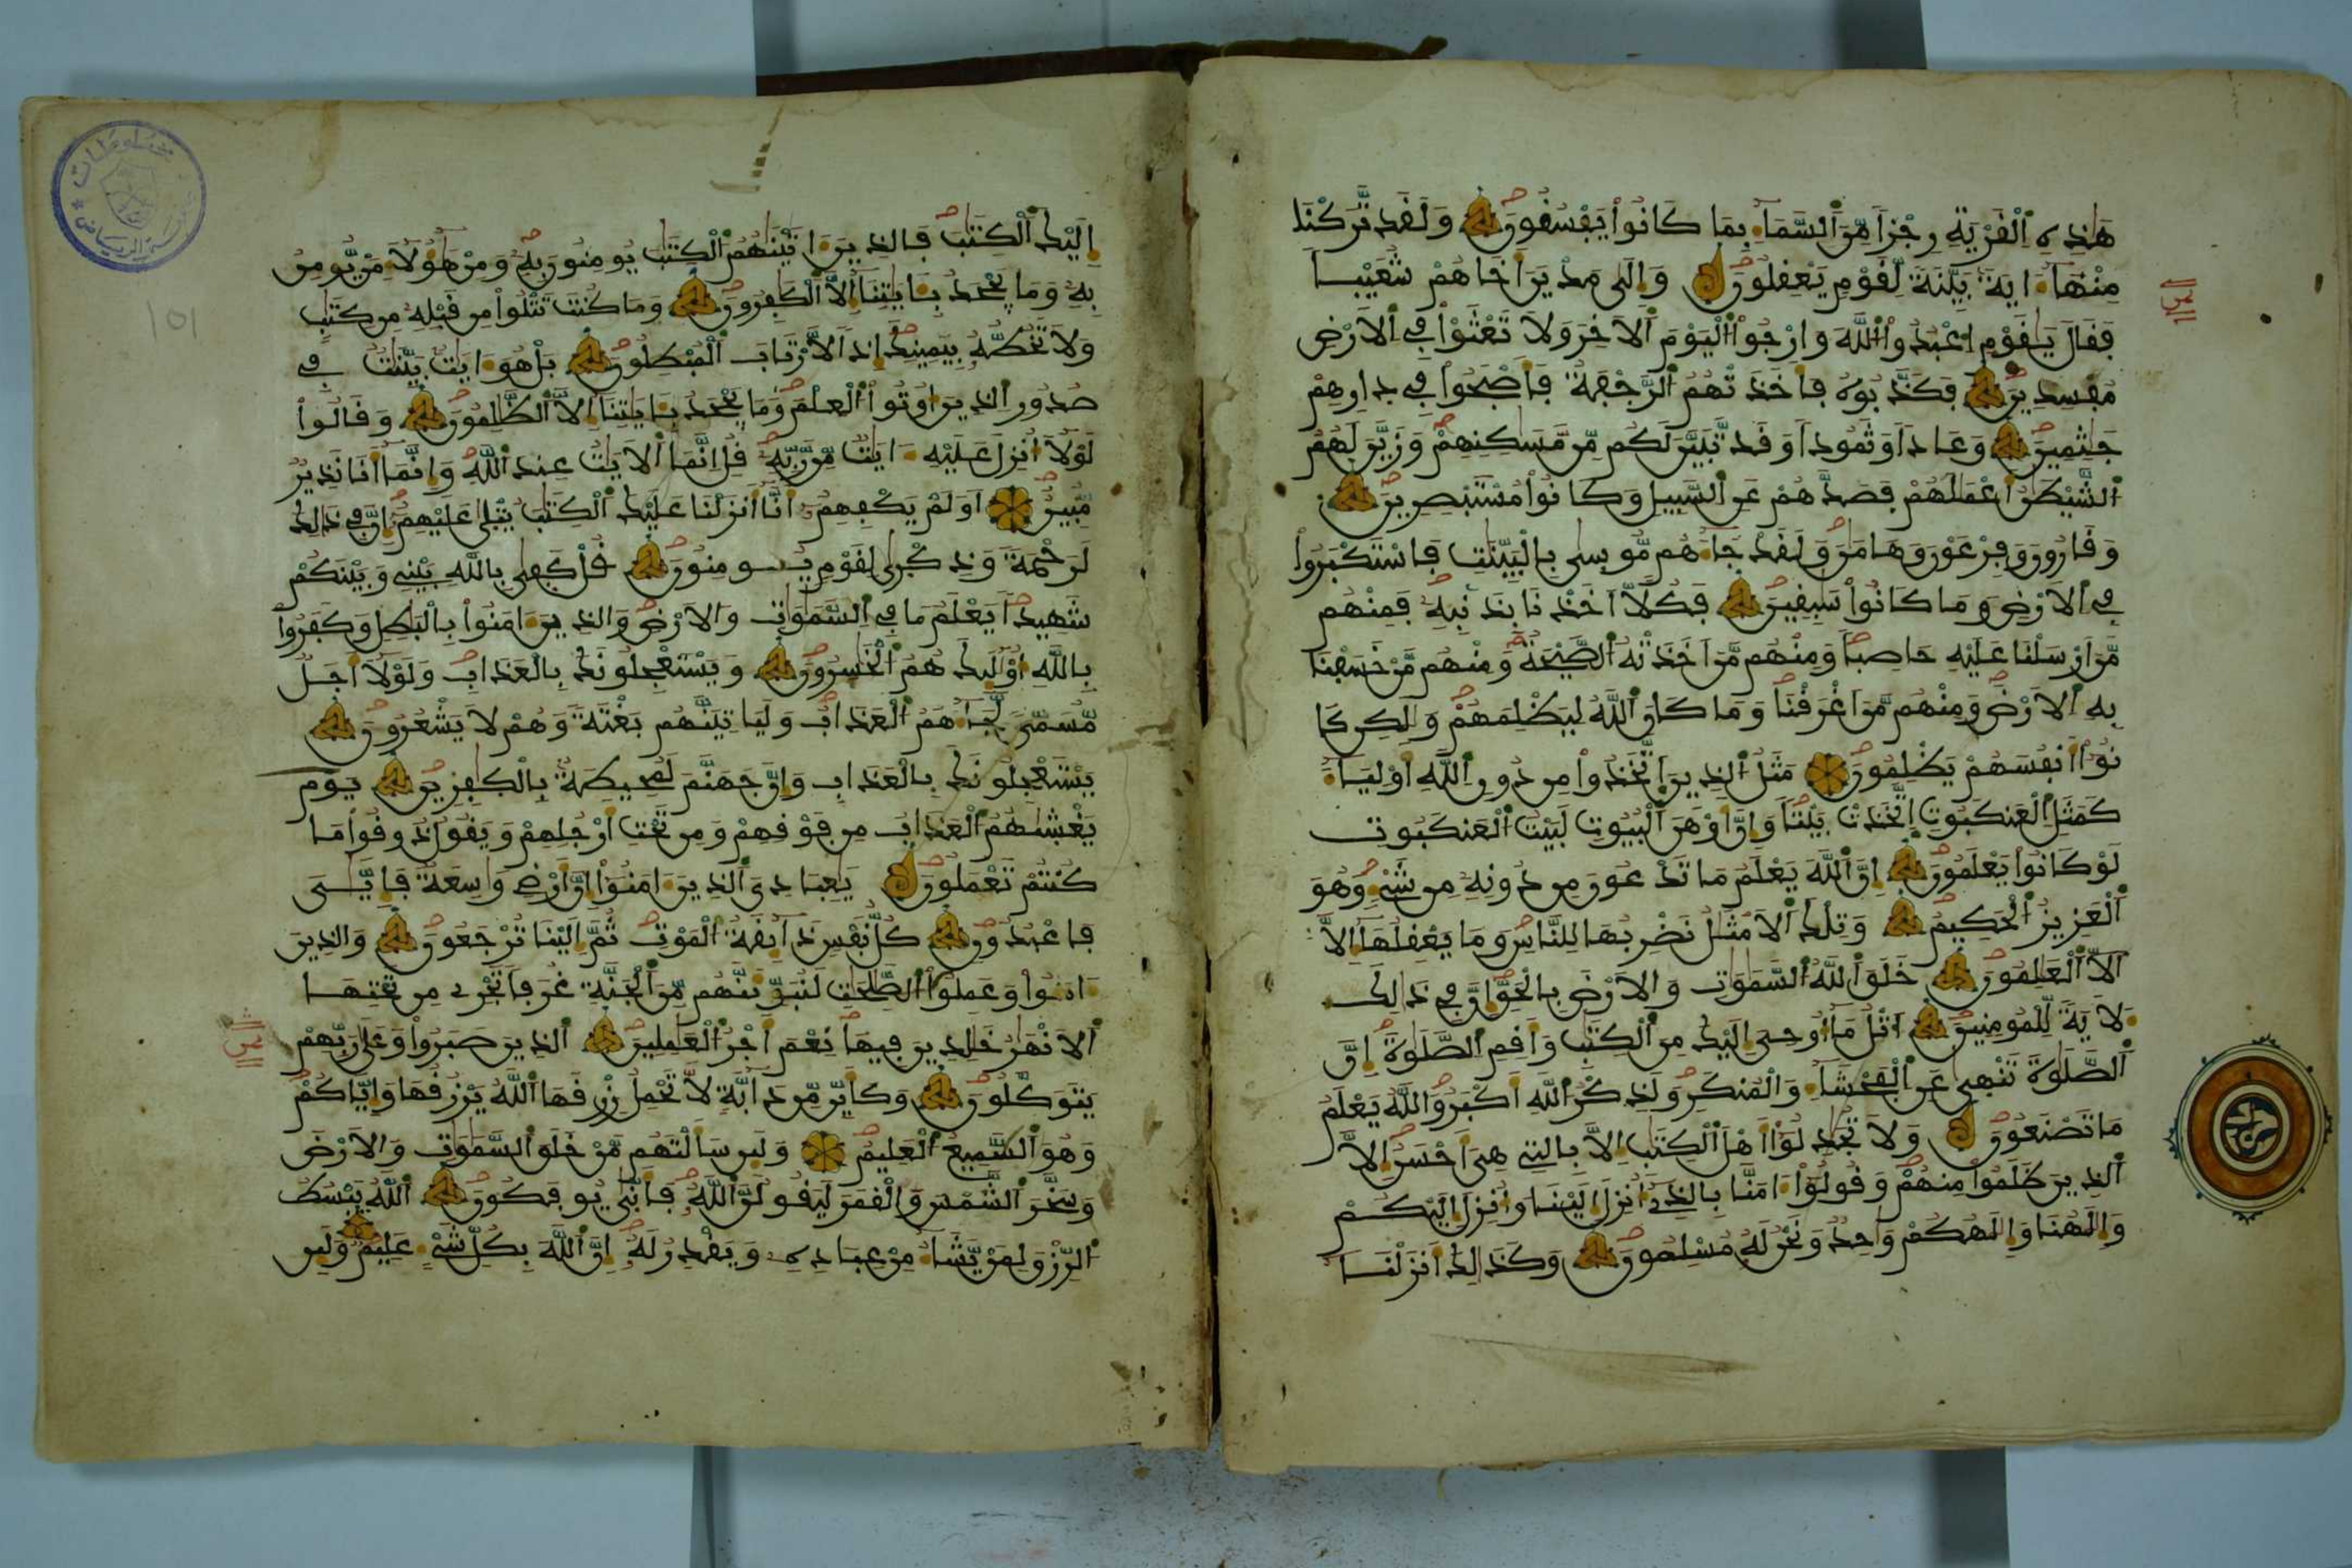 هذه القرية رجزا من السماء بما كانوا يفسقون ولقد تركنا
منها ءاية بينة لقوم يعقلون والى مدين اخاهم شعيبا
فقال يقوم اعبدوا الله وارجوا اليوم الاخر ولا تعثوا في الارض
مفسدين فكذبوه فاخذتهم الرجفة فاصبحوا في دارهم
جثمين وعادا وثمودا وقد تبين لكم من مسكنهم وزين لهم
الشيطن اعملهم فصدهم عن السبيل وكانوا مستبصرين
وقارون وفرعون وهامن ولقد جاءهم موسى بالبينت فاستكبروا
في الارض وما كانوا سبقين فكلا اخذنا بذنبه فمنهم
من ارسلنا عليه حاصبا ومنهم من اخذته الصيحة ومنهم من خسفنا
به الارض ومنهم من اغرقنا وما كان الله ليظلمهم ولكن كا
نوا انفسهم يظلمون مثل الذين اتخذوا من دون الله اولياء
كمثل العنكبوت اتخذت بيتا وان اوهن البيوت لبيت العنكبوت
لو كانوا يعلمون ان الله يعلم ما تدعون من دونه من شيء وهو
العزيز الحكيم وتلك الامثل نضربها للناس وما يعقلها الا
الا العلمون خلق الله السموت والارض بالحق ان في ذلك
لاية للمومنين اتل ما اوحي اليك من الكتب واقم الصلوة ان
الصلوة تنهى عن الفحشاء والمنكر ولذكر الله اكبر والله يعلم
ما تصنعون ولا تجدلوا اهل الكتب الا بالتي هي احسن الا
الذين ظلموا منهم وقولوا ءامنا بالذي انزل الينا وانزل اليكم
والهنا والهكم واحد ونحن له مسلمون وكذلك انزلنا
اليك الكتب فالذين ءاتينهم الكتب يومنون به ومن هؤلاء من يومن
به وما يجحد بـٔايتنا الا الكفرون وما كنت تتلوا من قبله من كتب
ولا تخطه بيمينك اذا لارتاب المبطلون بل هو ءايت بينت في
صدور الذين اوتوا العلم وما يجحد بـٔايتنا الا الظلمون وقالوا
لولا انزل عليه ءايت من ربه قل انما الايت عند الله وانما انا نذير
مبين اولم يكفهم انا انزلنا عليك الكتب يتلى عليهم ان في ذلك
لرحمة وذكرى لقوم يومنون قل كفى بالله بيني وبينكم
شهيدا يعلم ما في السموت والارض والذين ءامنوا بالبطل وكفروا
بالله اولئك هم الخسرون ويستعجلونك بالعذاب ولولا اجل
مسمى لجاءهم العذاب ولياتينهم بغتة وهم لا يشعرون
يستعجلونك بالعذاب وان جهنم لمحيطة بالكفرين يوم
يغشيهم العذاب من فوقهم ومن تحت ارجلهم ويقول ذوقوا ما
كنتم تعملون يعبادي الذين ءامنوا ان ارضي وسعة فايى
فاعبدون كل نفس ذائقة الموت ثم الينا ترجعون والذين
ءامنوا وعملوا الصلحت لنبوئنهم من الجنة غرفا تجري من تحتها
الانهر خلدين فيها نعم اجر العملين الذين صبروا وعلى ربهم
يتوكلون وكاين من دابة لا تحمل رزقها الله يرزقها واياكم
وهو السميع العليم ولين سالتهم من خلق السموت والارض
وسخر الشمس والقمر ليقولن الله فانى يوفكون الله يبسط
الرزق لمن يشاء من عباده ويقدر له ان الله بكل شيء عليم ولين